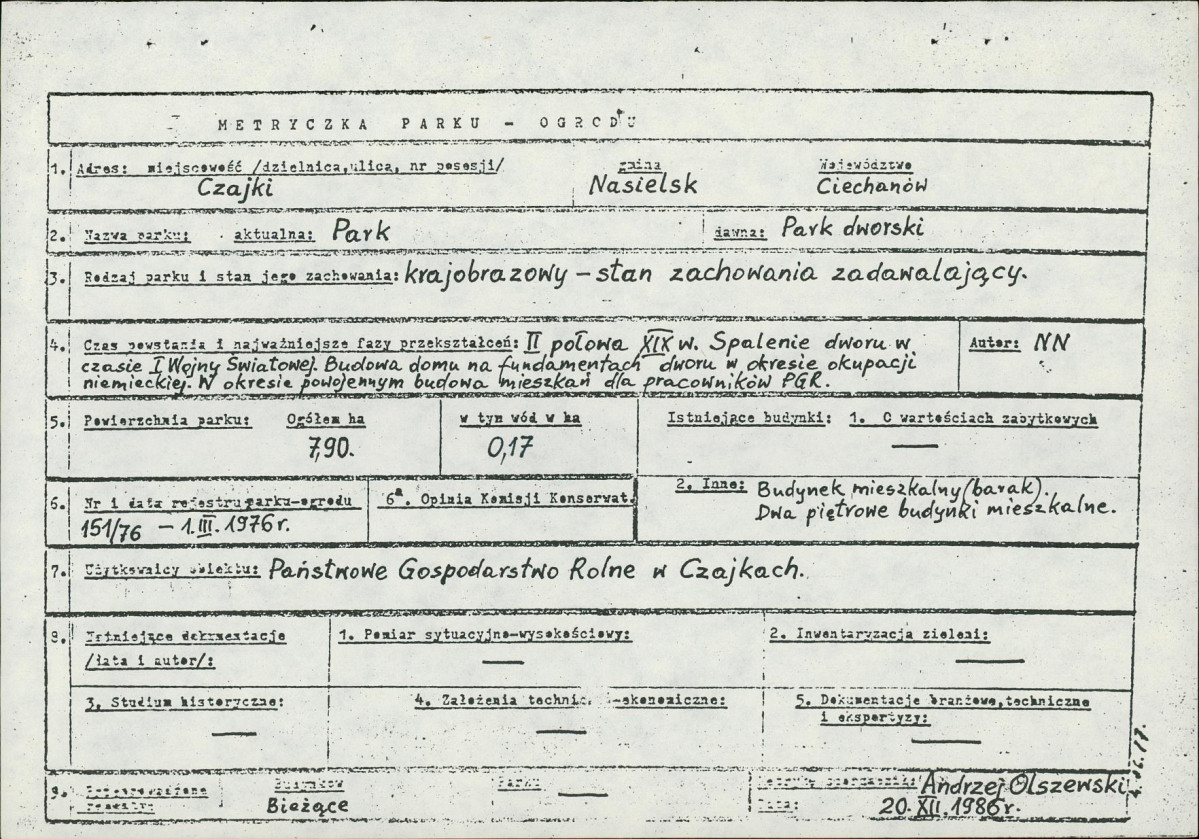 METRYCZKA PARKU - OGRODU
1. Adres: miejscowość /dzielnica,ulica, nr posesji/ gmina Województwo
Czajki Nasielsk Ciechanów
2. Nazwa parku: aktualna: Park dawna: Park dworski
3. Rodzaj parku i stan jego zachowania: krajobrazowy – stan zachowania zadawalający.
4. Czas powstania i najważniejsze fazy przekształceń: II połowa XIX w. Spalenie dworu w Autor: NN
czasie I Wojny Światowej. Budowa domu na fundamentach dworu w okresie okupacji
niemieckiej. W okresie powojennym budowa mieszkań dla pracowników PGR.
5. Powierzchnia parku: Ogółem ha w tym wód w ha Istniejące budynki: 1. O wartościach zabytkowych
7,90. 0,17 —
6. Nr i data rejestru parku-ogrodu 6a. Opinia Komisji Konserwat. 2. Inne: Budynek mieszkalny (barak).
151/76 – 1.III.1976r. Dwa piętrowe budynki mieszkalne.
7. Użytkownicy obiektu: Państwowe Gospodarstwo Rolne w Czajkach.
8. Istniejące dokumentacje 1. Pomiar sytuacyjno-wysokościowy: 2. Inwentaryzacja zieleni:
/data i autor/: — —
3. Studium historyczne: 4. Założenia techniczno-ekonomiczne: 5. Dokumentacje branżowe,techniczne
i ekspertyzy:
— — —
9. Przeprowadzone Budynków Parku —
remonty Bieżące
Andrzej Olszewski
Data: 20.XII.1986r.